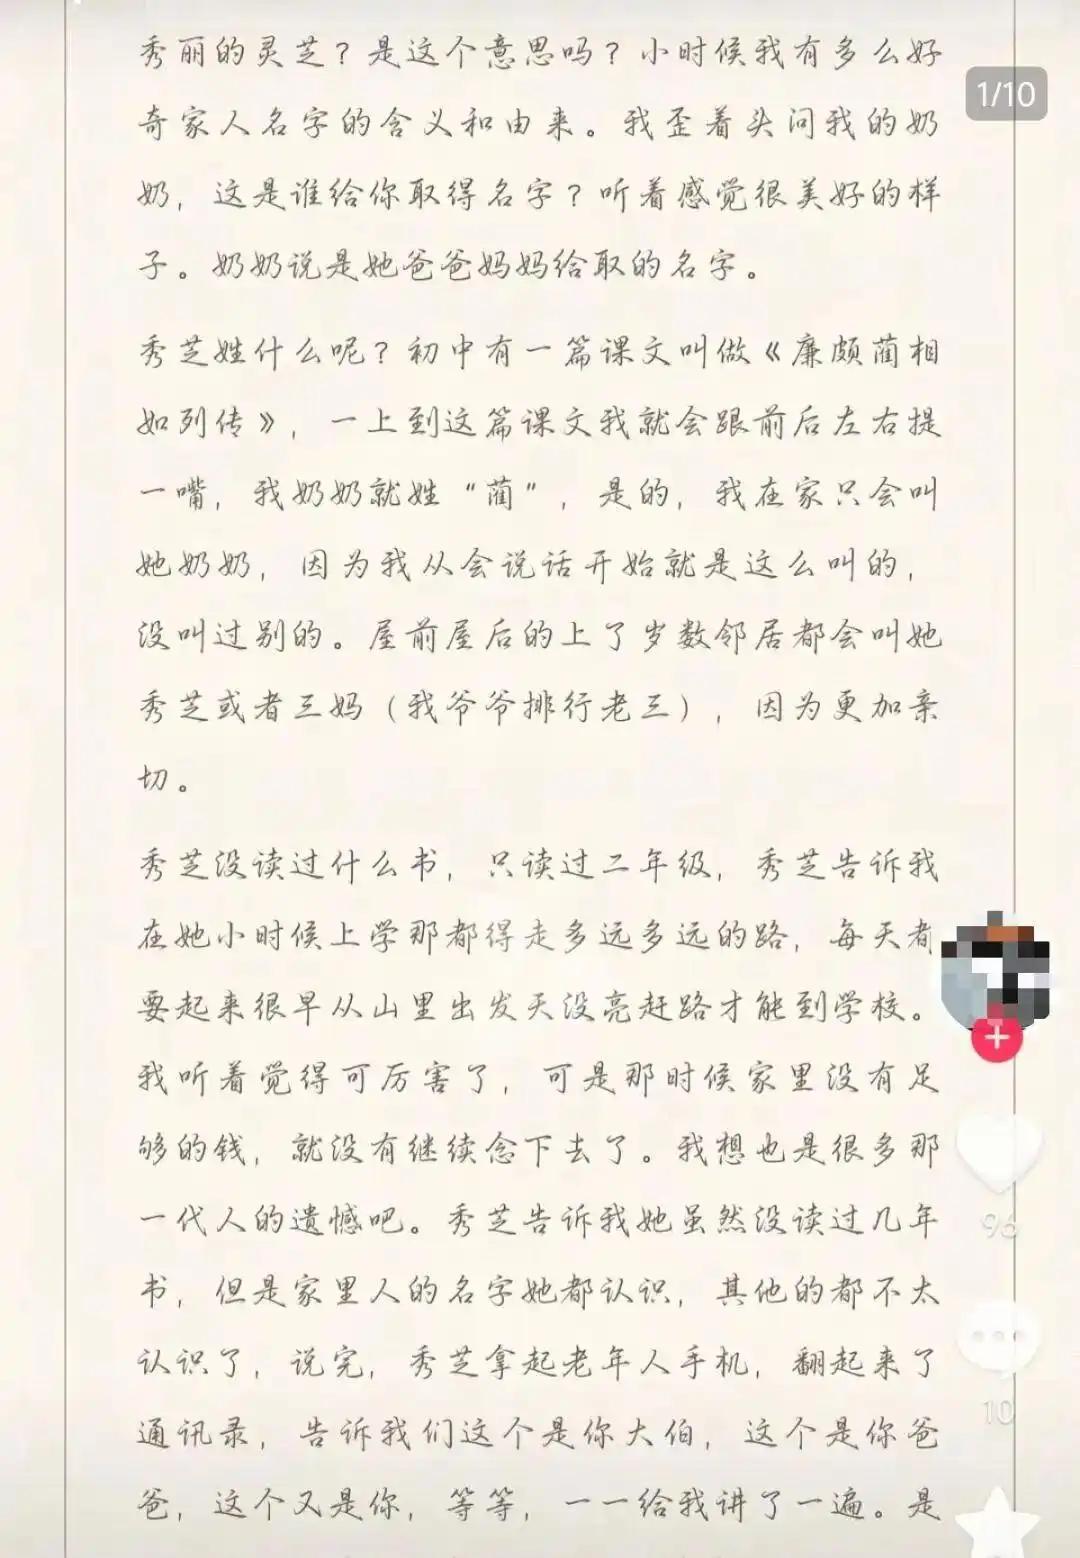 秀丽的灵芝？是这个意思吗？小时候我有多么好
1/10
奇家人名字的含义和由来。我歪着头问我的奶
奶，这是谁给你取得名字？听着感觉很美好的样
子。奶奶说是她爸爸妈妈给取的名字。
秀芝姓什么呢？初中有一篇课文叫做《廉颇蔺相
如列传》，一上到这篇课文我就会跟前后左右提
一嘴，我奶奶就姓“蔺”，是的，我在家只会叫
她奶奶，因为我从会说话开始就是这么叫的，
没叫过别的。屋前屋后的上了岁数邻居都会叫她
秀芝或者三妈（我爷爷排行老三），因为更加亲
切。
秀芝没读过什么书，只读过二年级，秀芝告诉我
在她小时候上学那都得走多远多远的路，每天都
要起来很早从山里出发天没亮赶路才能到学校。
我听着觉得可厉害了，可是那时候家里没有足
够的钱，就没有继续念下去了。我想也是很多那
一代人的遗憾吧。秀芝告诉我她虽然没读过几年
96
书，但是家里人的名字她都认识，其他的都不太
认识了，说完，秀芝拿起老年人手机，翻起来了
10
通讯录，告诉我们这个是你大伯，这个是你爸
爸，这个又是你，等等，一一给我讲了一遍。是